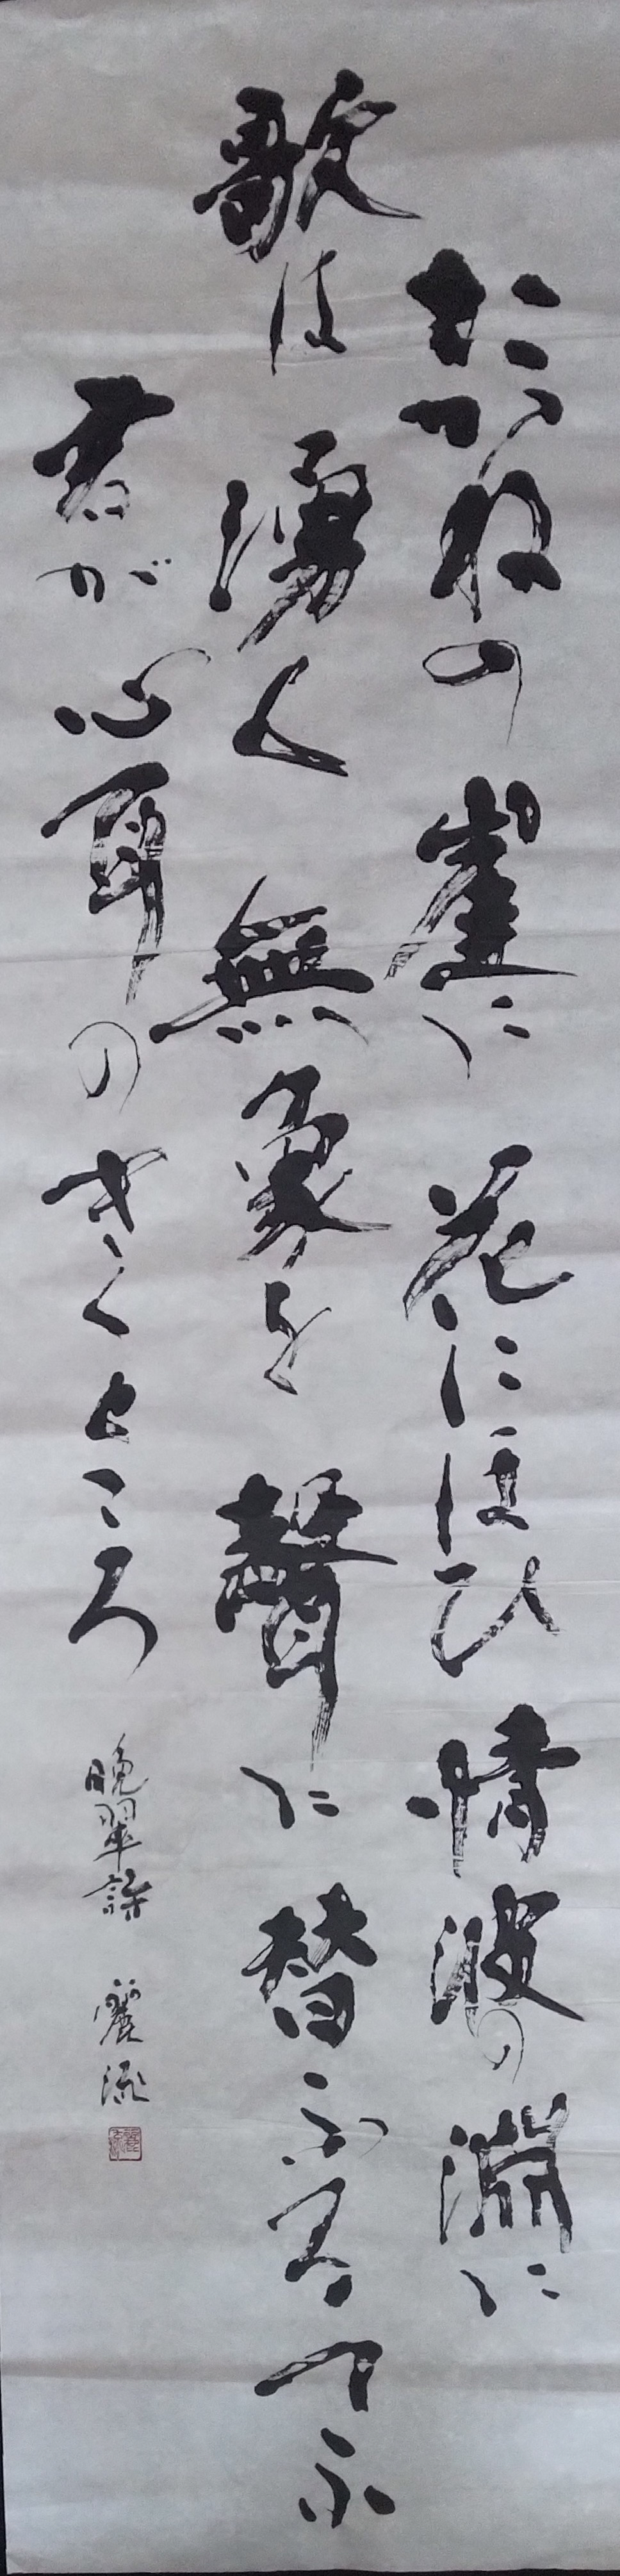 たかねの崖に花にほひ情波の淵に
歌は湧く無象を聲に替ふるてふ
君が心耳のきくところ
晩翠詩 麗流